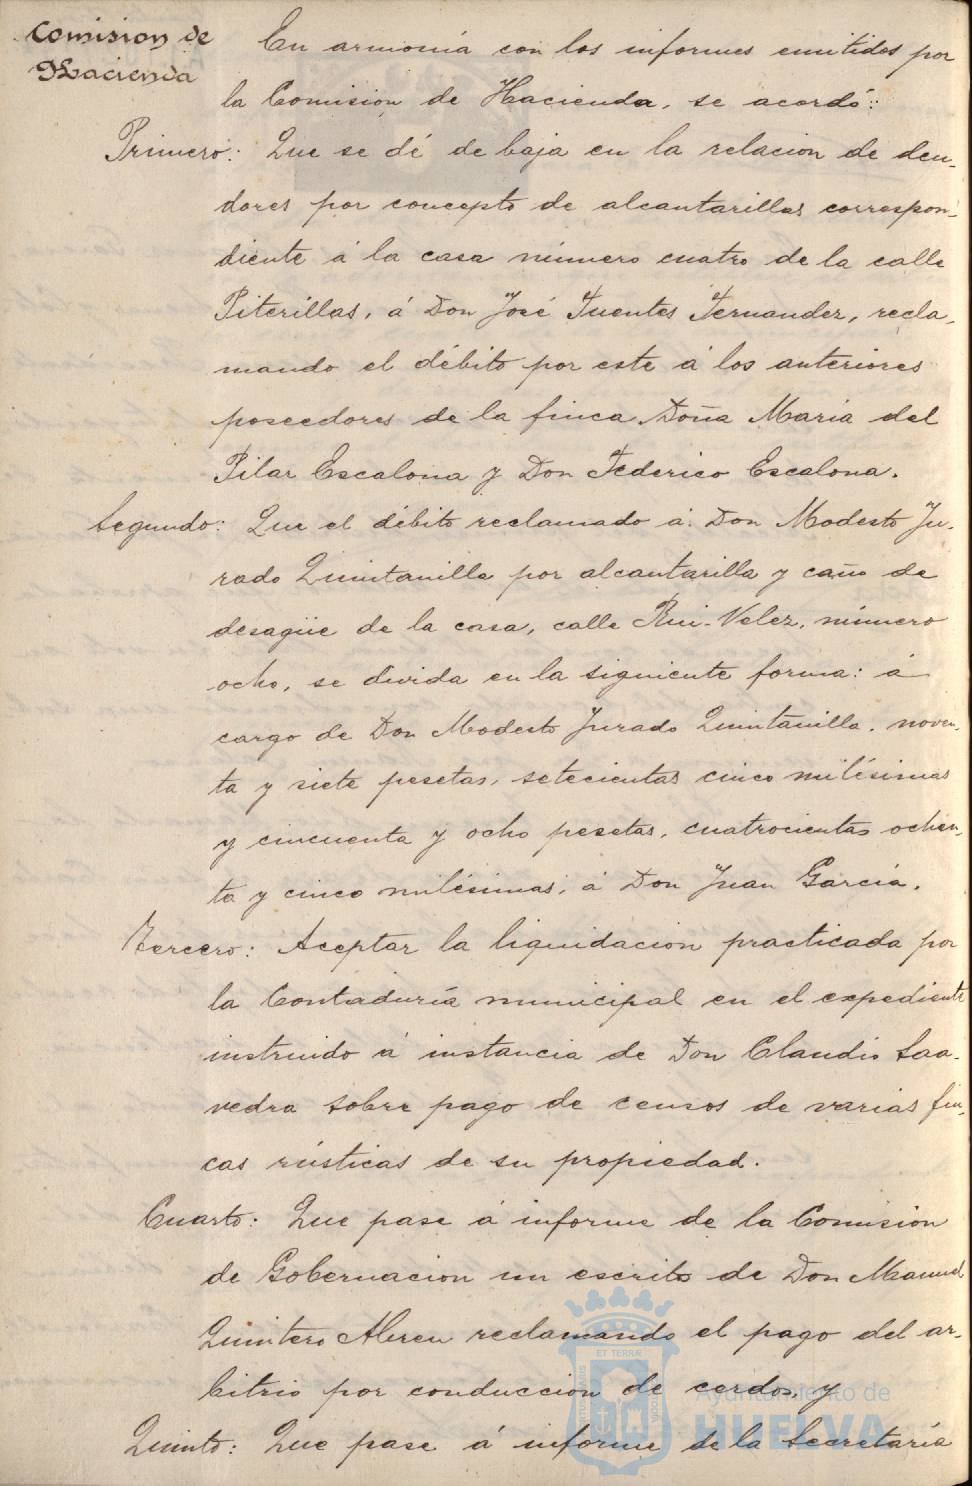 Comision de
Hacienda
En armonía con los informes emitidos por
la Comision de Hacienda, se acordó:
Primero: Que se dé de baja en la relacion de deu-
dores por concepto de alcantarillas correspon-
diente á la casa número cuatro de la calle
Piterillas, á Don José Fuentes Fernandez, recla-
mando el débito por este á los anteriores
poseedores de la finca Doña Maria del
Pilar Escalona y Don Federico Escalona.
Segundo: Que el débito reclamado á Don Modesto Ju-
rado Quintanilla por alcantarilla y caño de
desagüe de la casa, calle Rui-Velez, número
ocho, se divida en la siguiente forma: á
cargo de Don Modesto Jurado Quintanilla, noven-
ta y siete pesetas, setecientas cinco milésimas
y cincuenta y ocho pesetas, cuatrocientas ochen-
ta y cinco milésimas, á Don Juan García.
Tercero: Aceptar la liquidacion practicada por
la Contaduría municipal en el expediente
instruido á instancia de Don Claudio Saa-
vedra sobre pago de censos de varias fin-
cas rústicas de su propiedad.
Cuarto: Que pase á informe de la Comision
de Gobernacion un escrito de Don Manuel
Quintero Abreu reclamando el pago del ar-
bitrio por conduccion de cerdos, y
Quinto: Que pase á informe de la Secretaría
ET TERRÆ
Ayuntamiento de
HUELVA